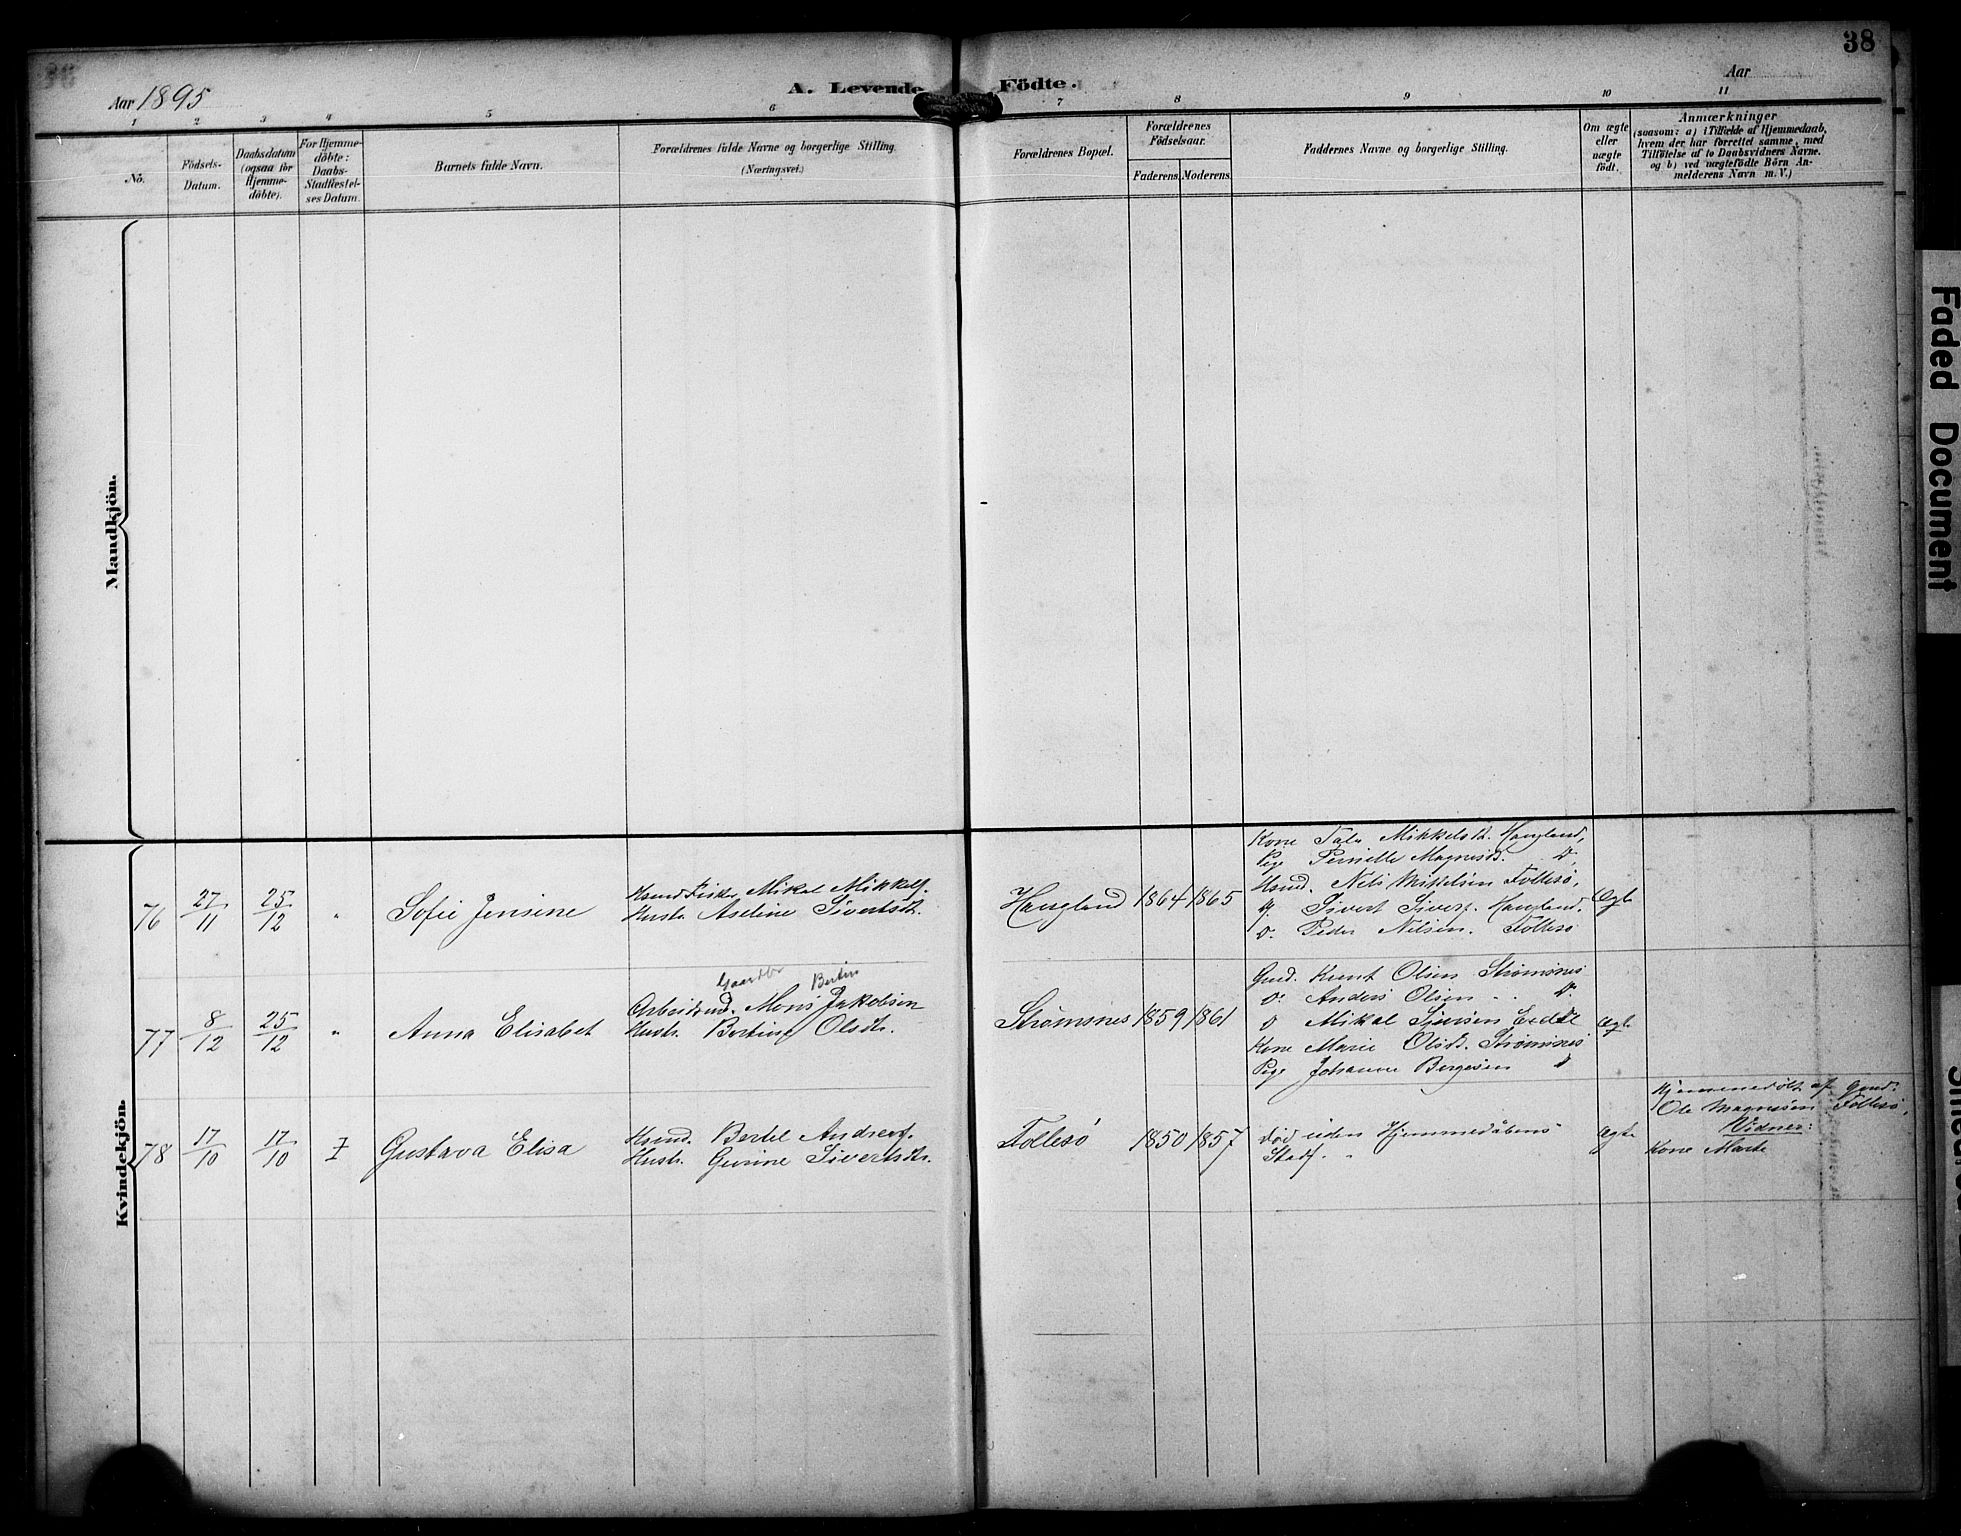 38
Aar 1895
A. Levende Födte.
Aar
1 2 3 4 5 6 7 8 9 10 11
No.
Födsels-
Datum.
Daabsdatum
(ogsaa for
Hjemme-
döbte).
For Hjemme-
döbte:
Daabs-
Stadfæstel-
ses Datum.
Barnets fulde Navn.
Forældrenes fulde Navne og borgerlige Stilling
(Næringsvei.)
Forældrenes Bopæl.
Forældrenes
Födselsaar.
Faderens. Moderens.
Faddernes Navne og borgerlige Stilling.
Om ægte
eller
uægte
födt.
Anmærkninger
(saasom: a) i Tilfælde af Hjemmedaab,
hvem der har forrettet samme, med
Tilföielse af to Daabsvidners Navne.
og b) ved uægtefödte Börn An-
melderens Navn m. V.)
Mandkjön.
Kvindekjön.
76 27/11 25/12 " Sofie Jensine
Hsmd Fisker Mikal Mikkels.
Hustr. Aseline Sivertsdtr.
Haugland 1864 1865
Kone Tale Mikkelsd. Haugland,
Pige Pernille Magnesd. D.
Husmd. Nils Mikkelsen Follesø,
D. Sivert Sivers. Haugland.
D. Peder Nilsen. Follesø
Ægte
77 8/12 25/12 " Anna Elisabet
Gaardbr Bertin
Arbeidsmd. Mons Jakobsen
Hustr. Bertine Olsdtr.
Strømsnes 1859 1861
Gmd. Knut Olsen Strømsnes
D. Anders Olsen " D.
D Mikal Sjursen Eide
Kone Marie Olsd. Strømsnes
Pige Johanne Børgesen D
Ægte
78 17/10 17/10 Gustava Elisa
Husmd. Bertel Andreas.
Hustr. Gurine Sivertsdtr.
Follesø 1850 1857
død uden Hjemmedåbens
Stadf. "
Ægte
Hjemmedøbt af Gmd.
Ole Magnesen Follesø,
Vidner:
Kone Marte
Faded Document